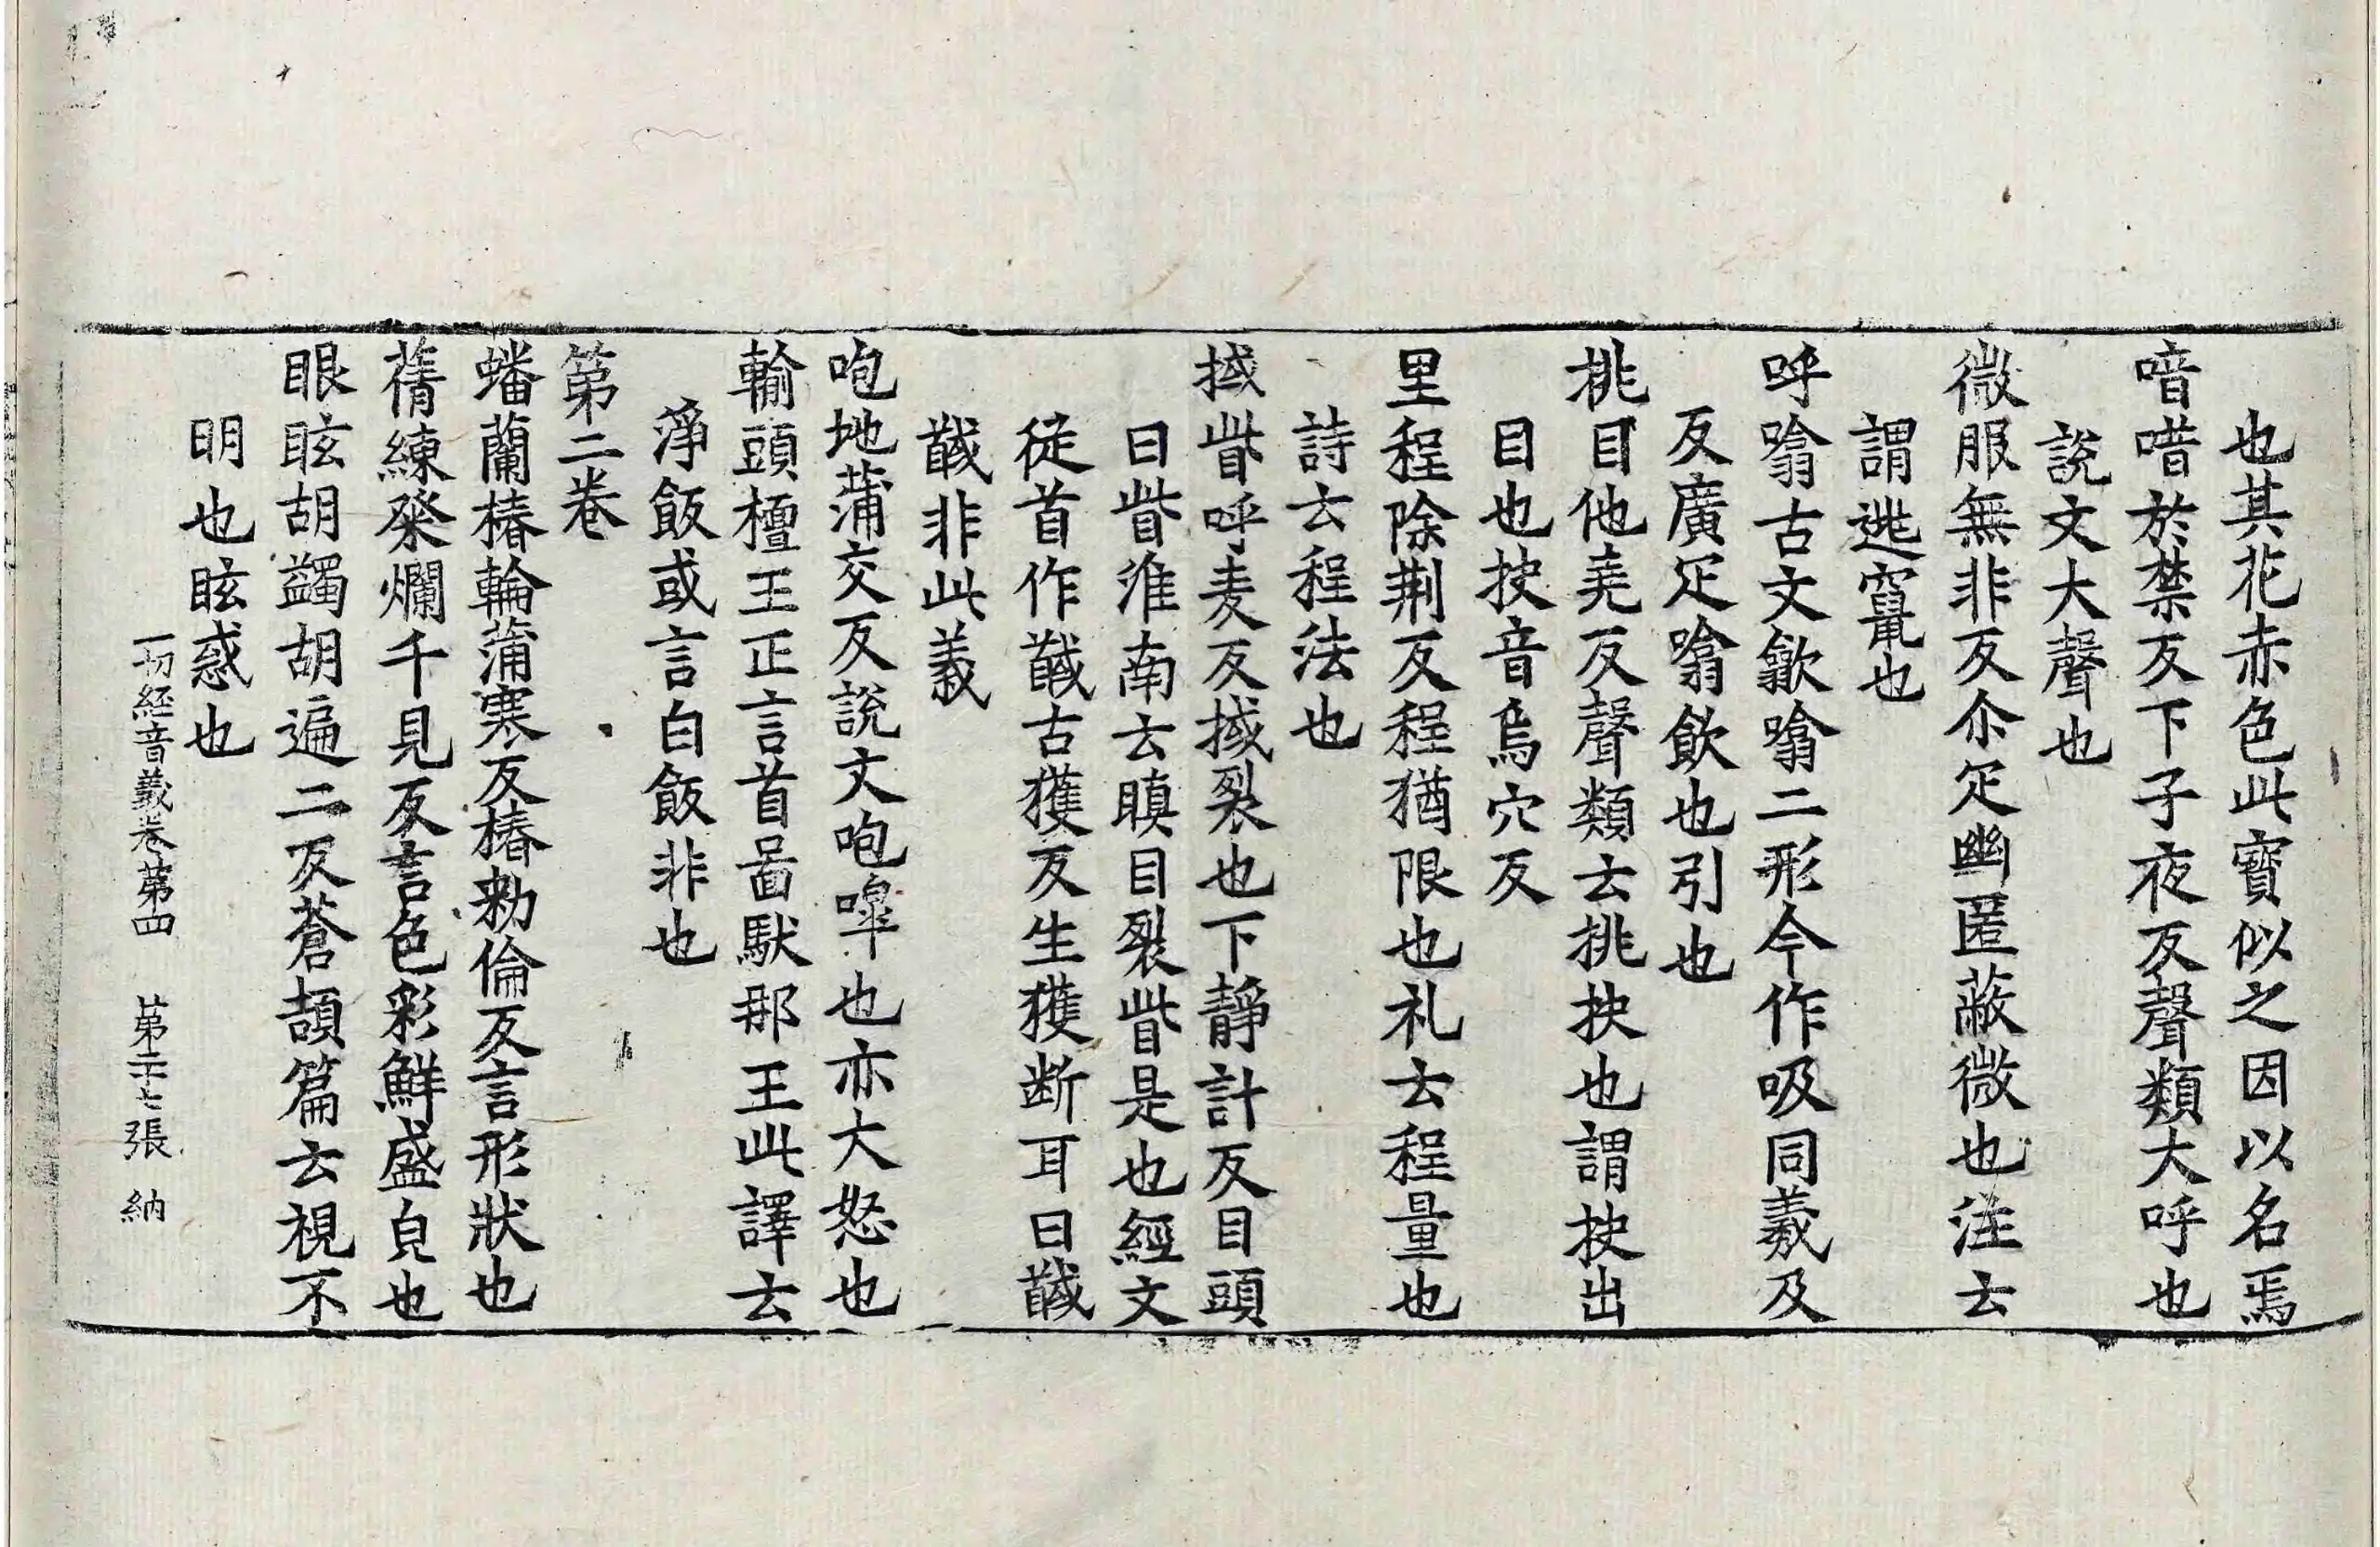 也其花赤色此寶似之因以名焉
喑唶於禁反下子夜反聲類大呼也
說文大聲也
微服無非反尒疋幽匿蔽微也注云
謂逃竄也
呼噏古文歙噏二形今作吸同羲及
反廣疋噏飲也引也
挑目他堯反聲類云挑抉也謂抉出
目也抉音烏穴反
里程除荆反程猶限也礼云程量也
詩云程法也
掝眥呼麦反掝裂也下靜計反目頭
曰眥淮南云瞋目裂眥是也經文
從首作馘古獲反生獲断耳曰馘
馘非此義
咆地蒲交反說文咆嘷也亦大怒也
輸頭檀王正言首啚馱那王此譯云
淨飯或言白飯非也
第二卷
蟠蘭椿輪蒲寒反椿勑倫反言形狀也
蒨練粲爛千見反言色彩鮮盛皃也
眼眩胡蠲胡遍二反蒼頡篇云視不
明也眩惑也
一切經音義卷第四 第二十七張 納